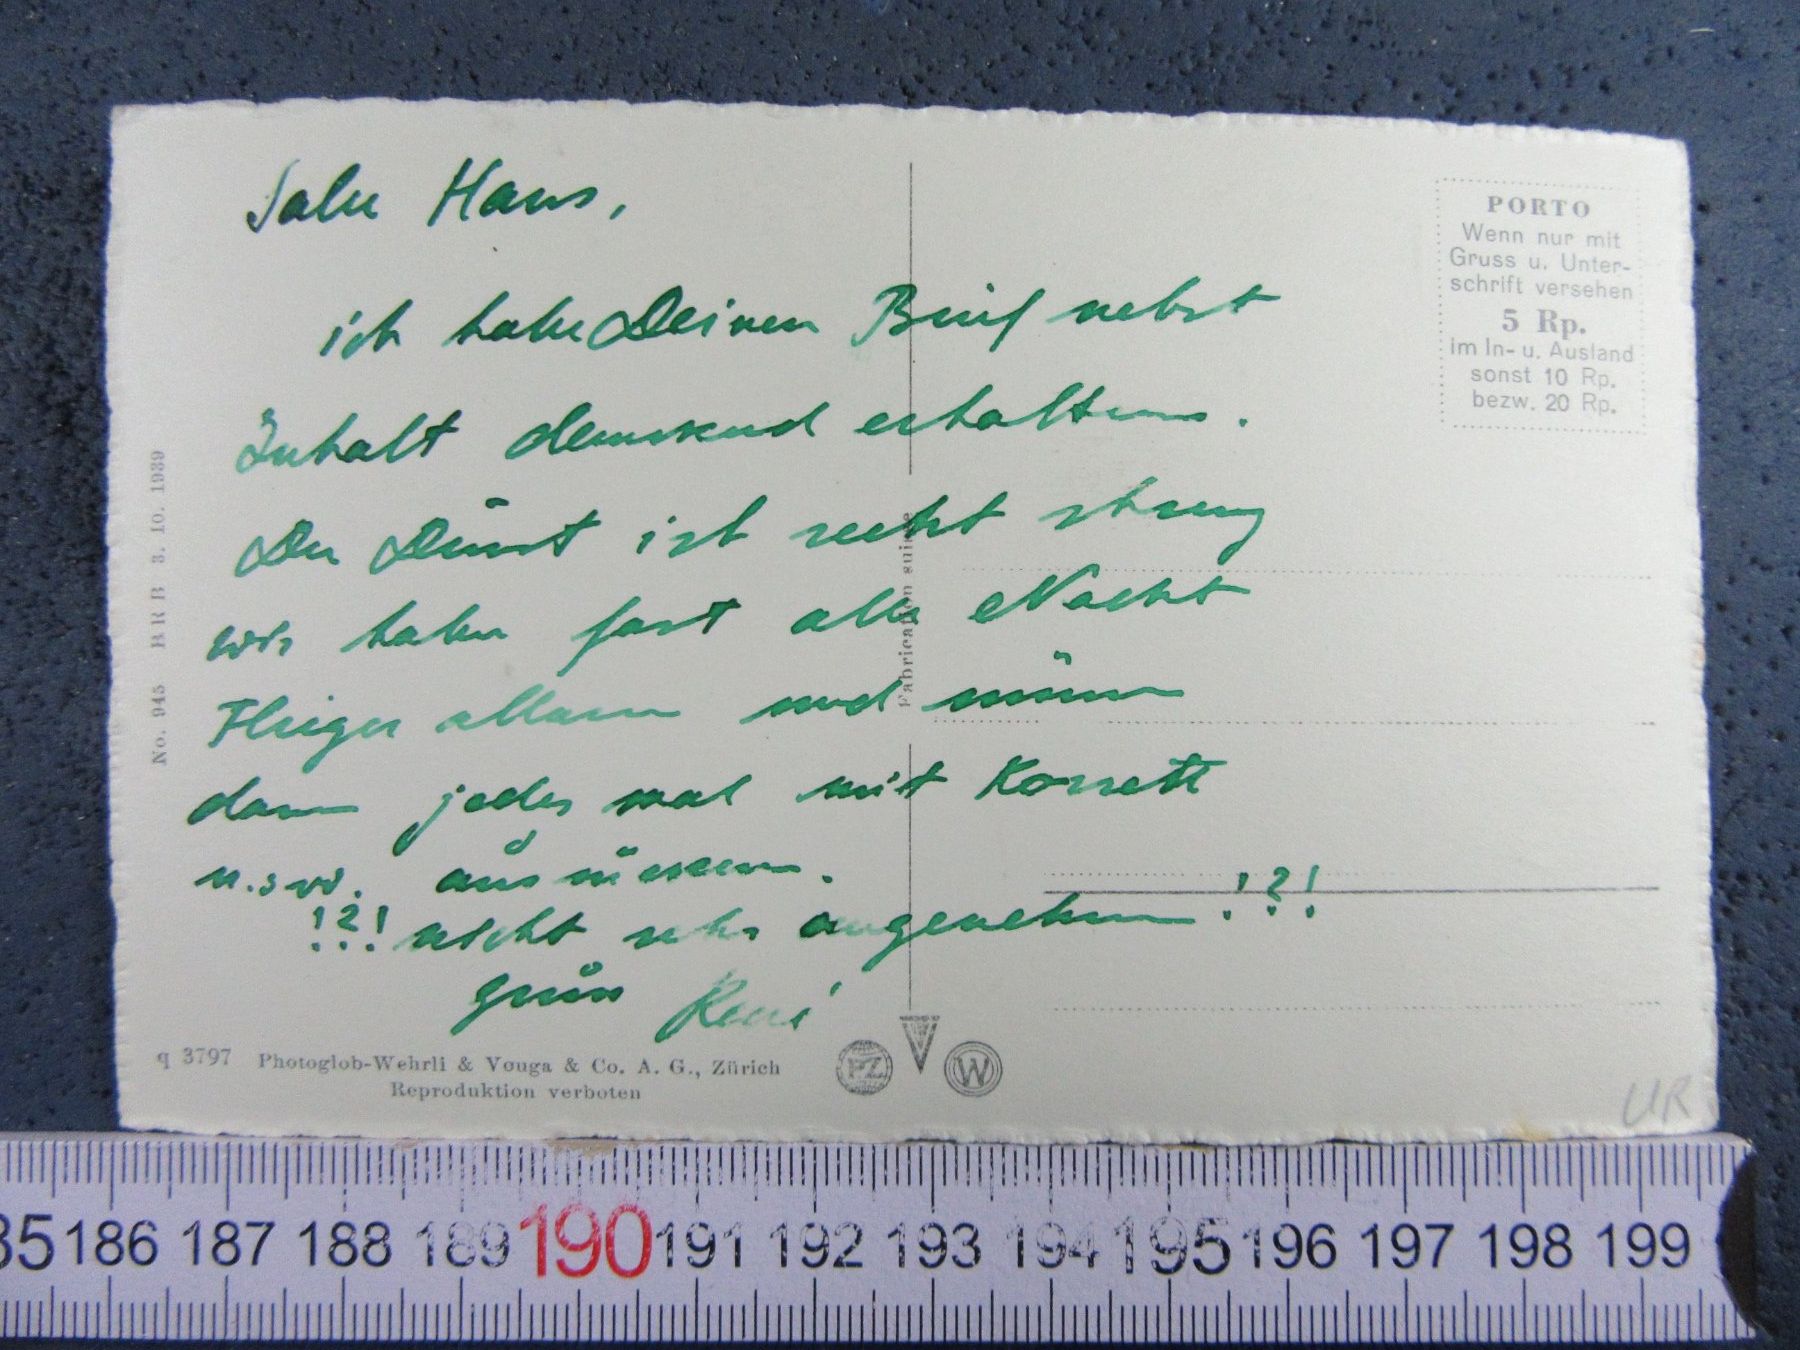 Salu Hans,
ich habe Deinen Brief nebst
Inhalt dankend erhalten.
Der Dienst ist recht streng
wir haben fast alle Nacht
Flieger allarm und müssen
dann jedes mal mit Korsett
u.s.w. ausrücken.
!?! nicht sehr angenehm !?!
Gruss René
PORTO
Wenn nur mit
Gruss u. Unter-
schrift versehen
5 Rp.
im In- u. Ausland
sonst 10 Rp.
bezw. 20 Rp.
No. 945 BRB 3. 10. 1939
Fabrication suisse
q 3797 Photoglob-Wehrli & Vouga & Co. A. G., Zürich
Reproduktion verboten
PZ
W
UR
186 187 188 189 190 191 192 193 194 195 196 197 198 199